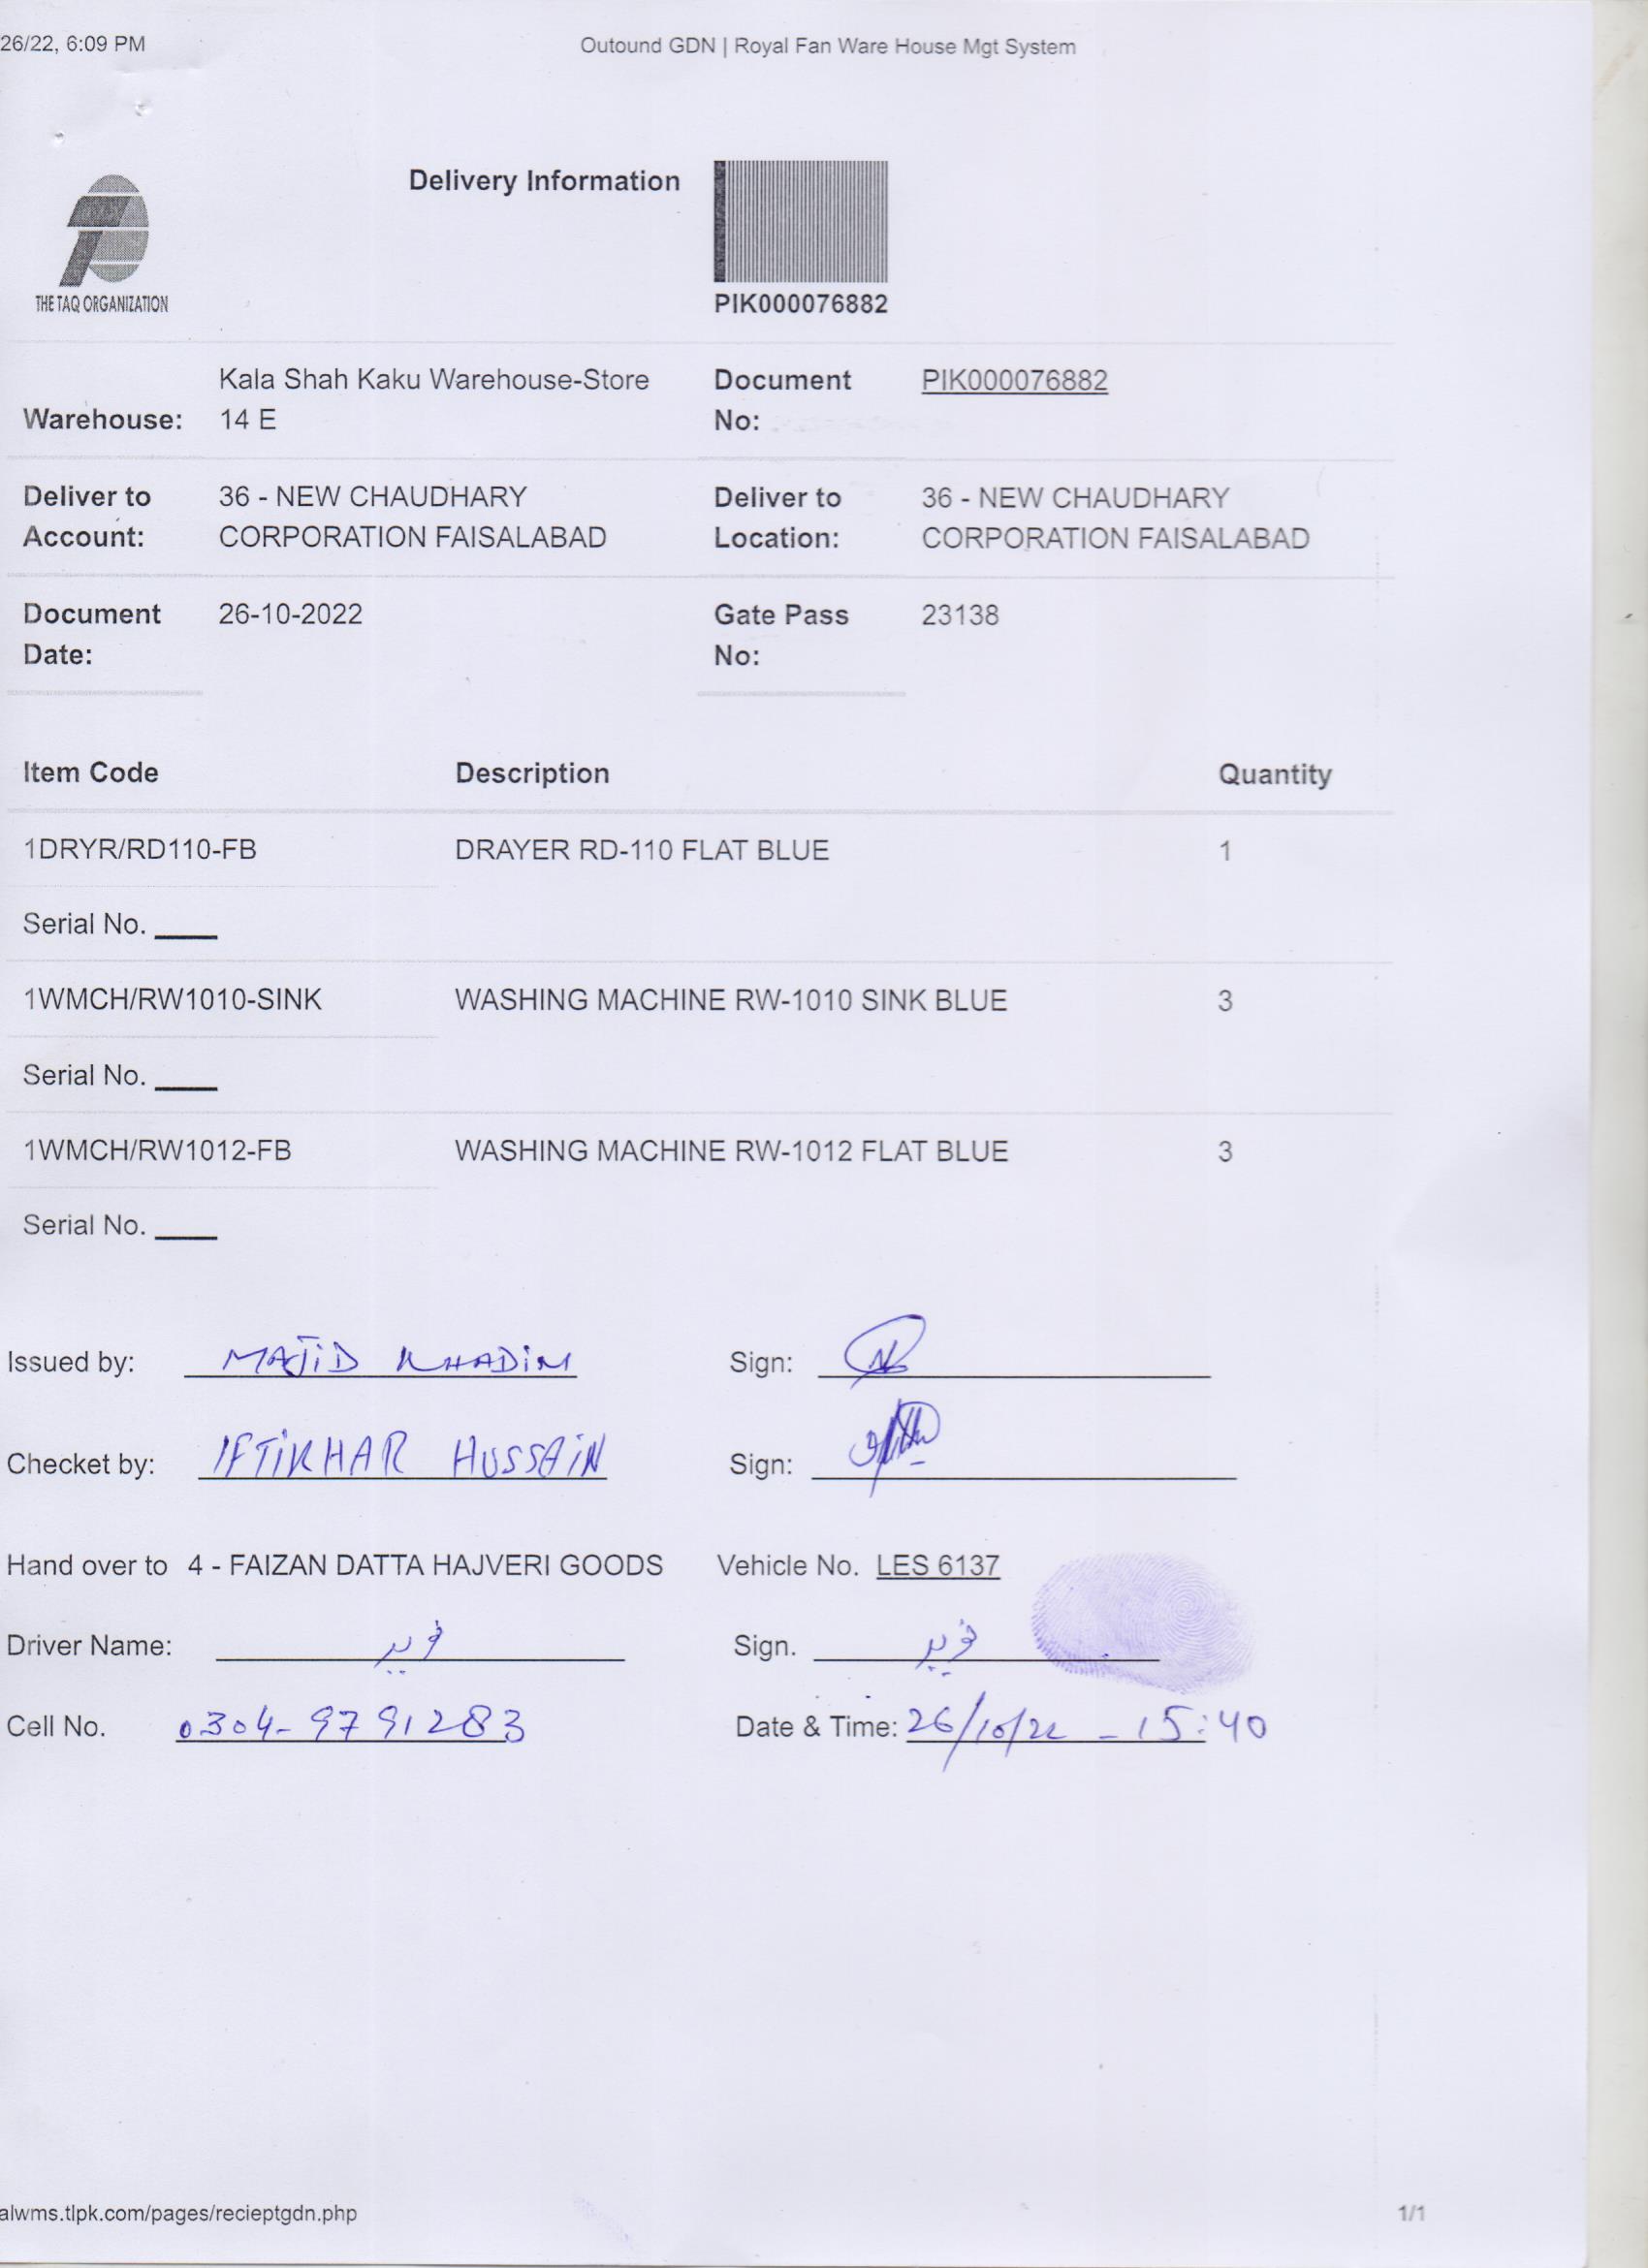 26/22, 6:09 PM Outound GDN | Royal Fan Ware House Mgt System
Delivery Information
THE TAQ ORGANIZATION
PIK000076882
Warehouse: Kala Shah Kaku Warehouse-Store 14 E Document No: PIK000076882
Deliver to Account: 36 - NEW CHAUDHARY CORPORATION FAISALABAD Deliver to Location: 36 - NEW CHAUDHARY CORPORATION FAISALABAD
Document Date: 26-10-2022 Gate Pass No: 23138
Item Code Description Quantity
1DRYR/RD110-FB DRAYER RD-110 FLAT BLUE 1
Serial No. ____
1WMCH/RW1010-SINK WASHING MACHINE RW-1010 SINK BLUE 3
Serial No. ____
1WMCH/RW1012-FB WASHING MACHINE RW-1012 FLAT BLUE 3
Serial No. ____
Issued by: MAJID KHADIM Sign:
Checket by: IFTIKHAR HUSSAIN Sign:
Hand over to 4 - FAIZAN DATTA HAJVERI GOODS Vehicle No. LES 6137
Driver Name: Sign.
Cell No. 0304-9791283 Date & Time: 26/10/22 - 15:40
alwms.tlpk.com/pages/recieptgdn.php 1/1